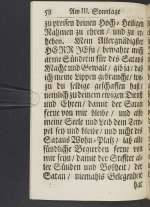 58 Am III. Sonntage
zu preisen deinen Hoch-Heiligen
Nahmen zu ehren / und zu er-
heben. Mein Allergnädigster
HERR JEsu / bewahre mich
arme Sünderin für des Satans
Macht und Gewalt / gib daß
ich meine Lippen gebrauche / wo-
zu du selbige erschaffen hast /
nemlich zu deinem ewigen Dienst
und Ehren / damit der Satan
ferne von mir bleibe / und
meine Seele und Leib dein Tem-
pel sey und bleibe / und nicht des
Satans Wohn-Platz /
sündliche Begierden ferne von
mir seyn / damit der Stiffter al-
ler Sünden und Boßheit / der
Satan / niemahls Gelegenheit